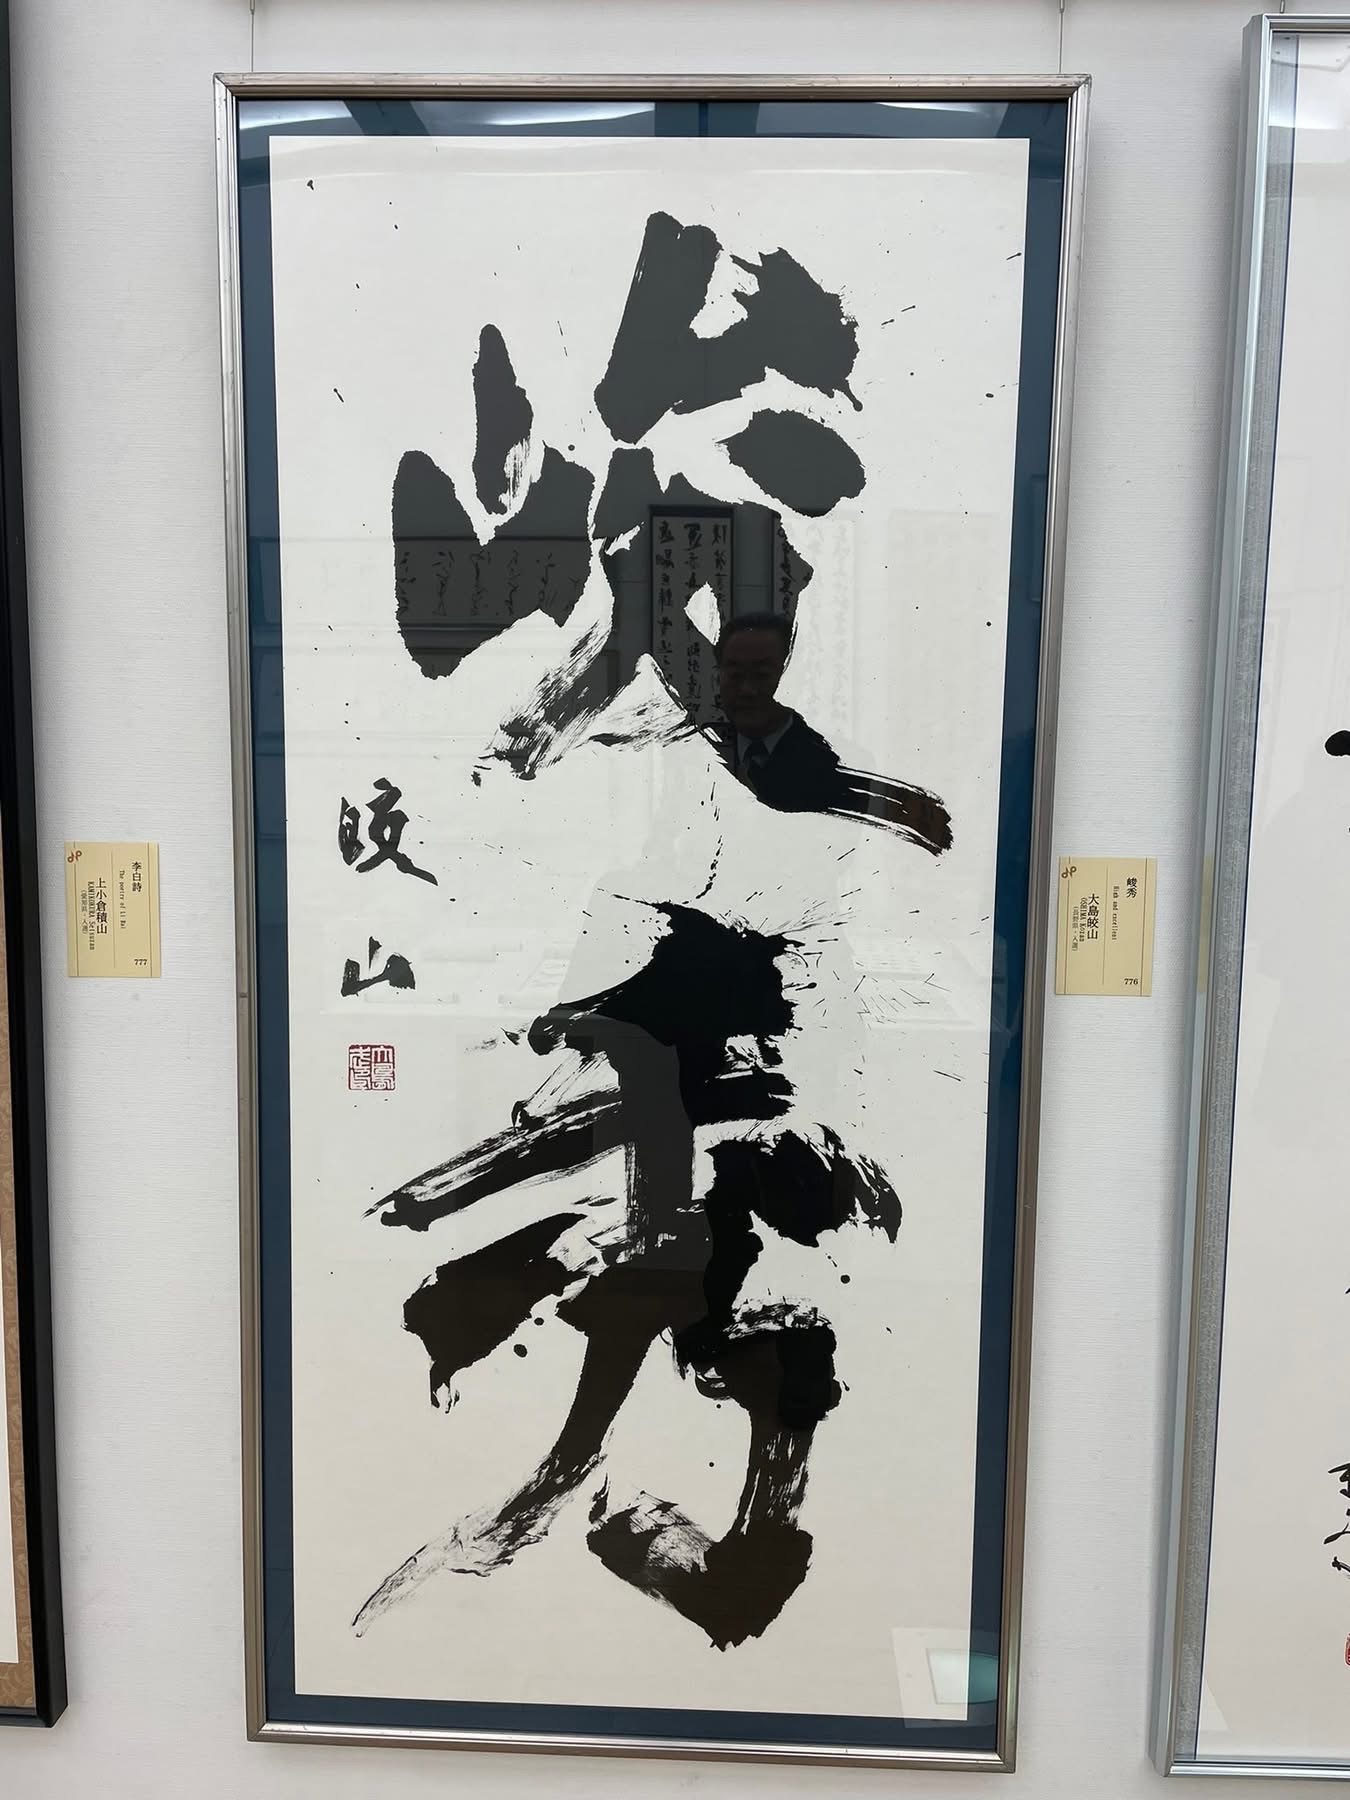 峻秀
皎山
峻秀
High and excellent
大島皎山
OSHIMA Kozan
776
李白詩
The poetry of Li Bai
上小倉積山
KAMIKOKURA Sekizan
777